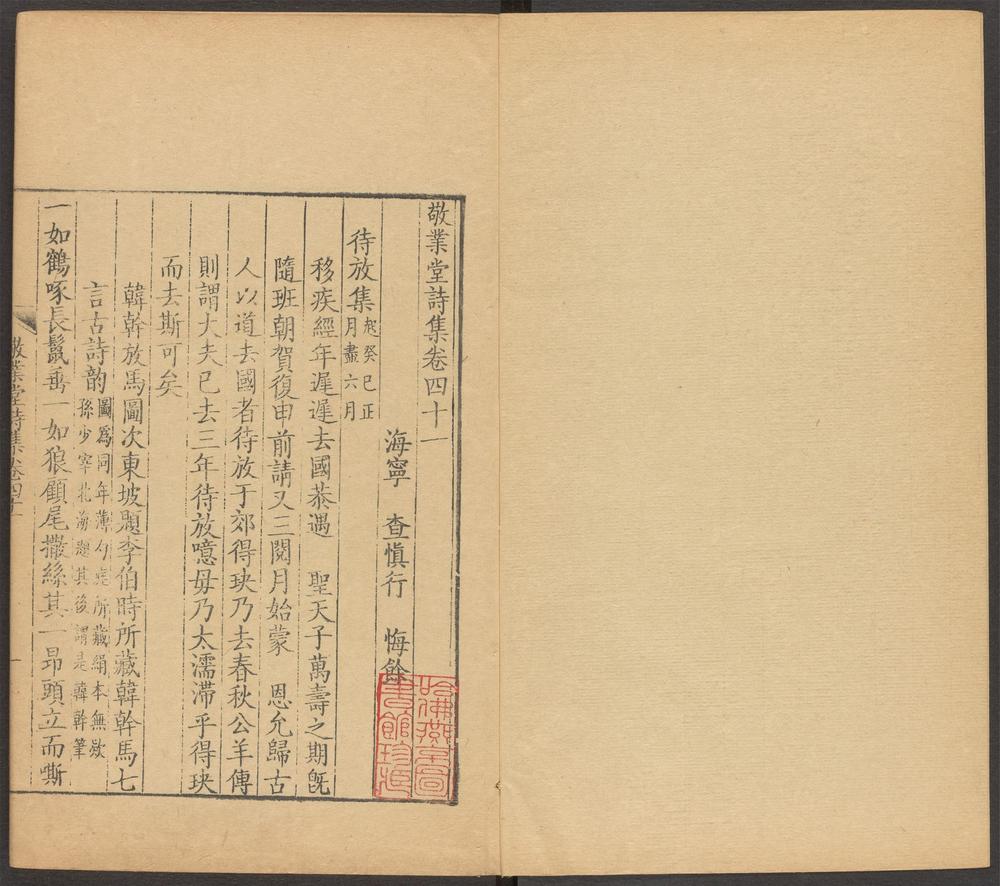 敬業堂詩集卷四十一
海寧　查愼行　悔餘
待放集起癸巳正月盡六月
移疾經年遲遲去國恭遇　聖天子萬壽之期旣
隨班朝賀復申前請又三閱月始蒙　恩允歸古
人以道去國者待放于郊得玦乃去春秋公羊傳
則謂大夫已去三年待放噫毋乃太濡滯乎得玦
而去斯可矣
韓幹放馬圖次東坡題李伯時所藏韓幹馬七
言古詩韵圖爲同年薄勺庭所藏絹本無欵孫少宰北海題其後謂是韓幹筆
一如鶴啄長鬣垂一如狼顧尾撒絲其一昂頭立而嘶
敬業堂詩集卷四十一
一
哈佛燕京圖書館珍藏